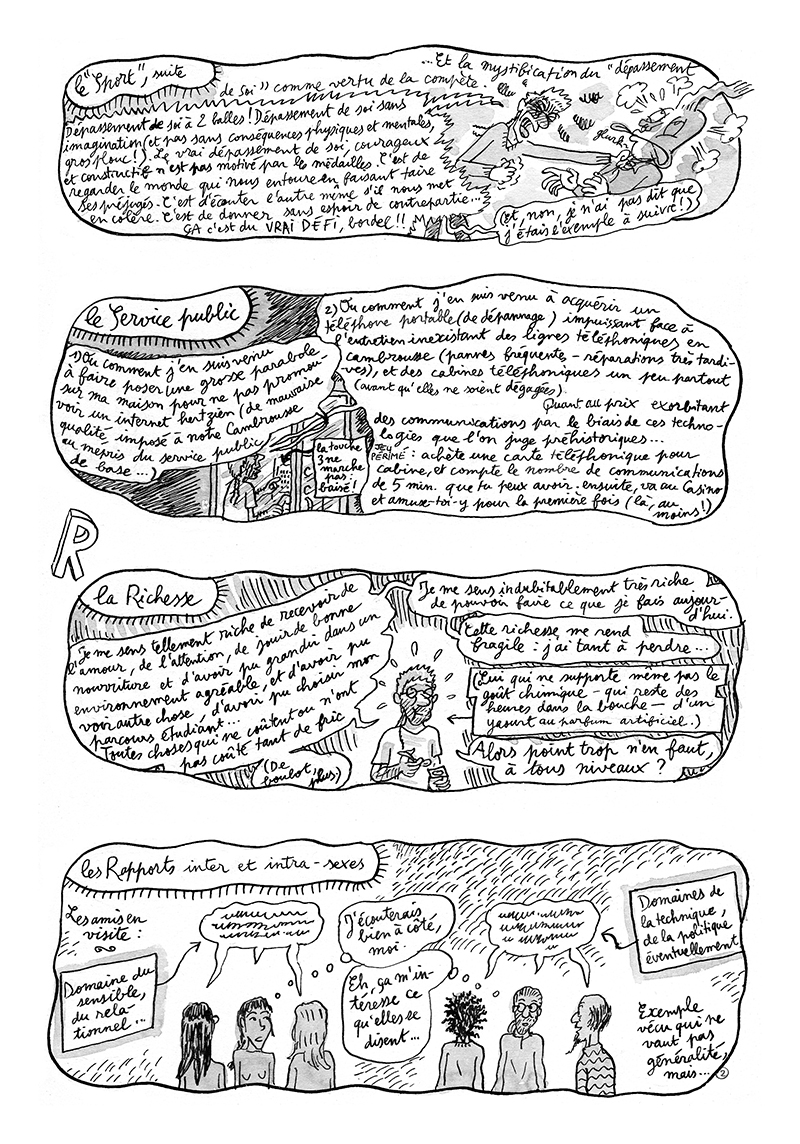 le "Sport", suite
...Et la mystification du "dépassement
de soi" comme vertu de la compète.
Dépassement de soi à 2 balles! Dépassement de soi sans
imagination (et pas sans conséquences physiques et mentales,
gros plouc!). Le vrai dépassement de soi, courageux
et constructif n'est pas motivé par les médailles. C'est de
regarder le monde qui nous entoure en faisant taire
ses préjugés. C'est d'écouter l'autre même s'il nous met
en colère. C'est de donner sans espoir de contrepartie...
ÇA c'est du VRAI DÉFI, bordel!!
glurk
(et, non, je n'ai pas dit que
j'étais l'exemple à suivre!)
le Service public
1) Ou comment j'en suis venu
à faire poser une grosse parabole
sur ma maison pour ne pas promou-
voir un internet hertzien (de mauvaise
qualité, imposé à notre Cambrousse
au mépris du service public
de base...)
la touche
3 ne
marche
pas:
baisé!
2) Ou comment j'en suis venu à acquérir un
téléphone portable (de dépannage) impuissant face à
l'entretien inexistant des lignes téléphoniques en
cambrousse (pannes fréquentes - réparations très tardi-
ves), et des cabines téléphoniques un peu partout
(avant qu'elles ne soient dégagées).
Quant au prix exorbitant
des communications par le biais de ces techno-
logies que l'on juge préhistoriques...
JEU
PÉRIMÉ : achète une carte téléphonique pour
cabine, et compte le nombre de communications
de 5 min. que tu peux avoir. ensuite, va au Casino
et amuse-toi-y pour la première fois (là, au
moins!)
R
la Richesse
Je me sens tellement riche de recevoir de
l'amour, de l'attention, de jouir de bonne
nourriture et d'avoir pu grandir dans un
environnement agréable, et d'avoir pu
voir autre chose, d'avoir pu choisir mon
parcours étudiant...
Toutes choses qui ne coûtent ou n'ont
pas coûté tant de fric
(De
boulot,
plus)
Je me sens indubitablement très riche
de pouvoir faire ce que je fais aujour-
d'hui.
Cette richesse me rend
fragile : j'ai tant à perdre...
(Lui qui ne supporte même pas le
goût chimique - qui reste des
heures dans la bouche - d'un
yaourt au parfum artificiel.)
Alors point trop n'en faut,
à tous niveaux ?
les Rapports inter et intra-sexes
Les amis en
visite :
Domaine du
sensible,
du rela-
tionnel...
J'écouterais
bien à côté,
moi.
Eh, ça m'in-
téresse ce
qu'elles se
disent...
Domaines de
la technique,
de la politique
éventuellement
Exemple
vécu qui ne
vaut pas
généralité,
mais...
2